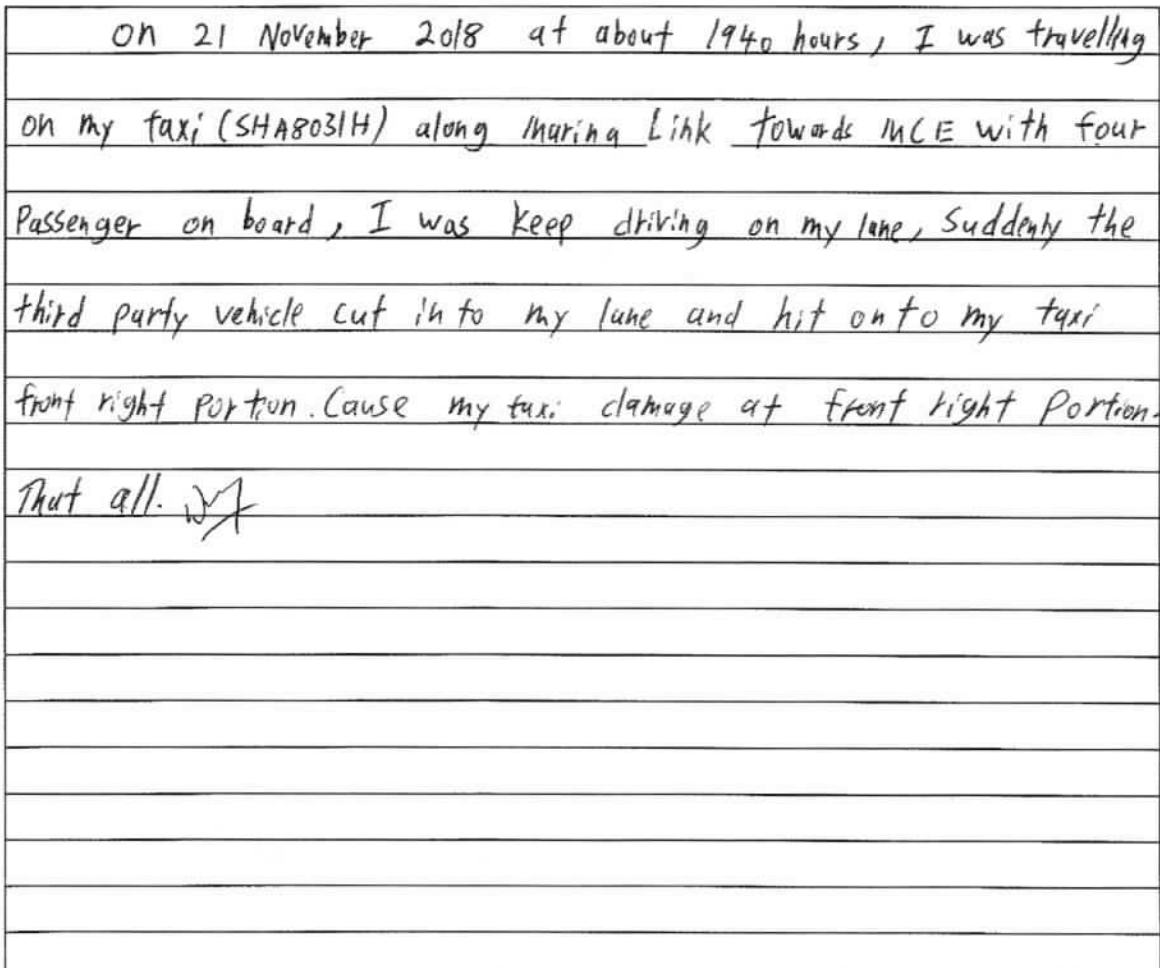 On 21 November 2018 at about 1940 hours, I was travelling
on my taxi (SHA8031H) along Marina Link towards MCE with four
Passenger on board, I was keep driving on my lane, Suddenly the
third party vehicle cut in to my lane and hit onto my taxi
front right portion. Cause my taxi damage at front right Portion.
That all.